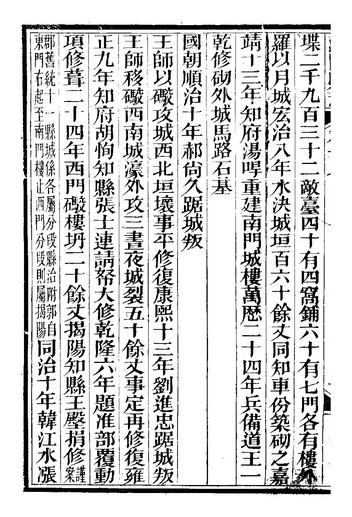 堞二千九百三十二敵臺四十有四窩鋪六十有七門各有樓外
羅以月城宏治八年水決城垣百六十餘丈同知車份築砌之嘉
靖十三年知府湯㫤重建南門城樓萬厯二十四年兵備道王一
乾修砌外城馬路石墓
國朝順治十年郝尚久踞城叛
王師以礮攻城西北垣壞事平修復康熙十三年劉進忠踞城叛
王師移礮西南城濠外攻三晝夜城裂五十餘丈事定再修復雍
正九年知府胡恂知縣張士連請帑大修乾隆六年題准部覆動
項修葺二十四年西門礮樓坍二十餘丈揭陽知縣王壂捐修謹案
郡舊統十一縣城係各屬分段縣治附郭自
東門右起至南門樓止西門分段則屬揭陽同治十年韓江水漲